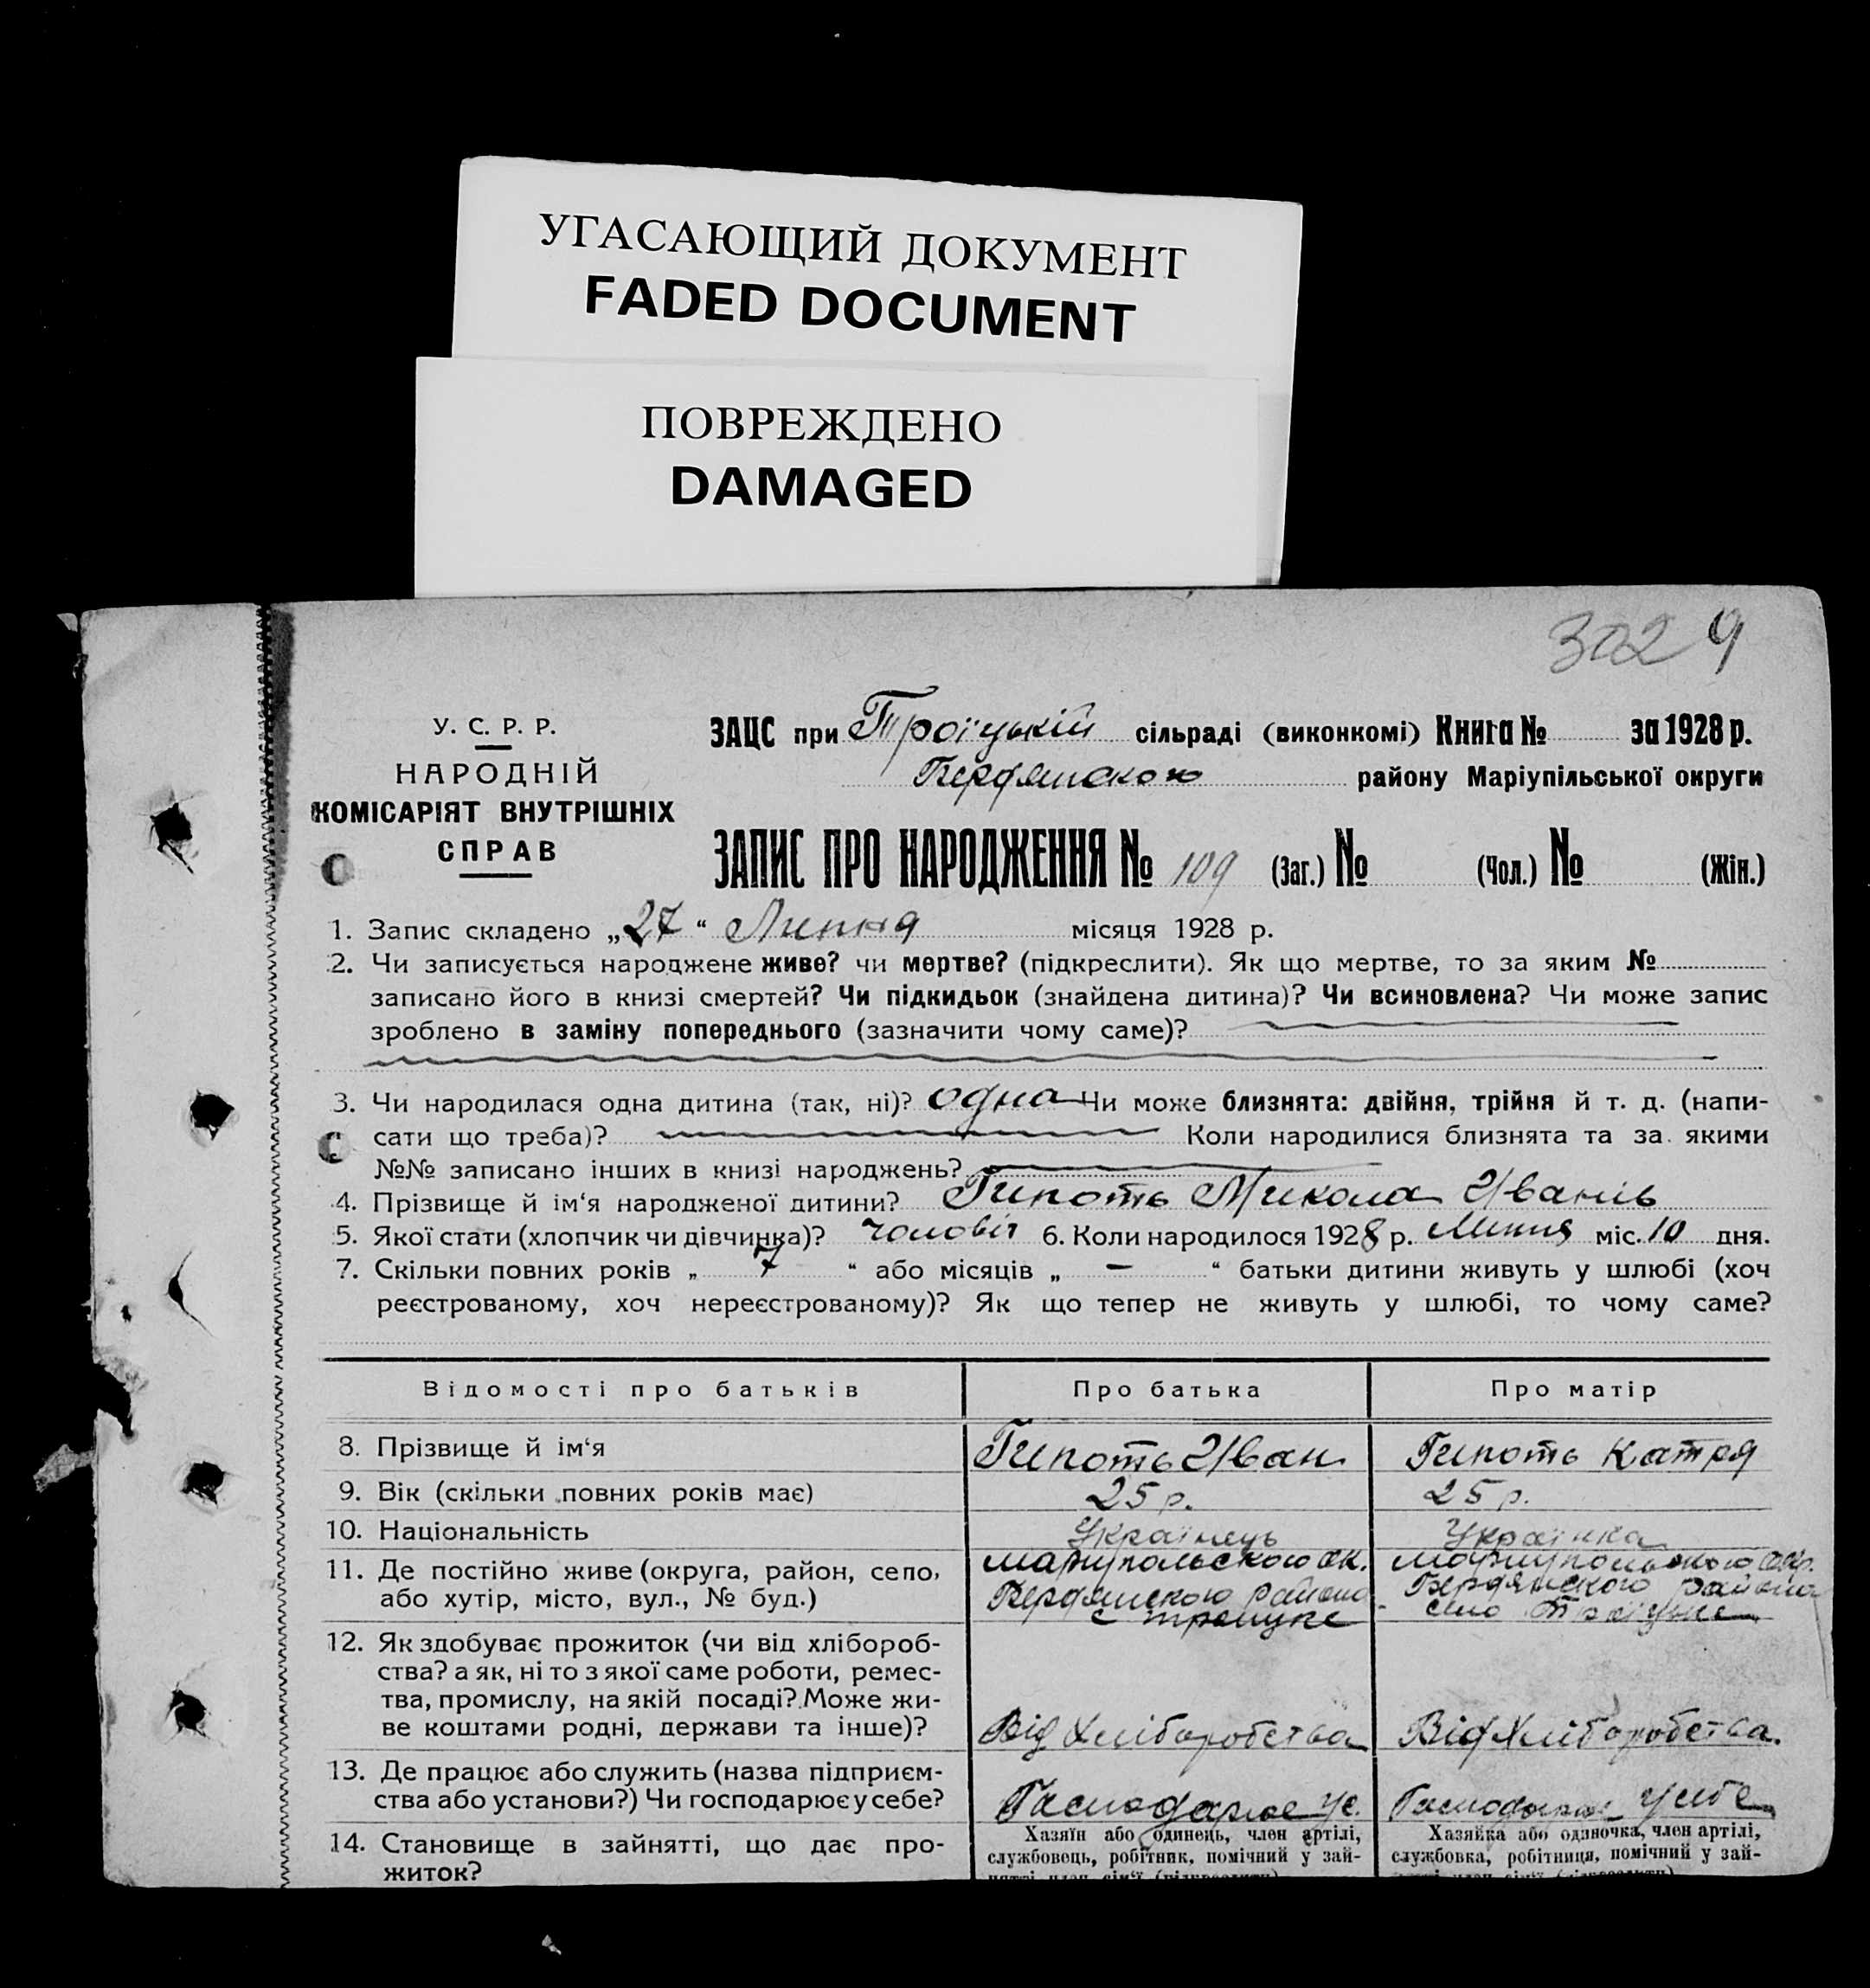 УГАСАЮЩИЙ ДОКУМЕНТ
FADED DOCUMENT
ПОВРЕЖДЕНО
DAMAGED
302 9
У. С. Р. Р.
НАРОДНІЙ
КОМІСАРІЯТ ВНУТРІШНІХ
СПРАВ
ЗАЦС при Троїцькій сільраді (виконкомі) Книга № за 1928 р.
Бердянского району Маріупільської округи
ЗАПИС ПРО НАРОДЖЕННЯ № 109 (Заг.) № (Чол.) № (Жін.)
1. Запис складено „27“ Липня місяця 1928 р.
2. Чи записується народжене живе? чи мертве? (підкреслити). Як що мертве, то за яким №
записано його в книзі смертей? Чи підкидьок (знайдена дитина)? Чи всиновлена? Чи може запис
зроблено в заміну попереднього (зазначити чому саме)?
3. Чи народилася одна дитина (так, ні)? одна Чи може близнята: двійня, трійня й т. д. (напи-
сати що треба)? Коли народилися близнята та за якими
№№ записано інших в книзі народжень?
4. Прізвище й ім‘я народженої дитини? Гипоть Микола Іванів
5. Якої стати (хлопчик чи дівчинка)? Чоловіч 6. Коли народилося 1928 р. Липня міс. 10 дня.
7. Скільки повних років „ 7 “ або місяців „ — “ батьки дитини живуть у шлюбі (хоч
реєстрованому, хоч нереєстрованому)? Як що тепер не живуть у шлюбі, то чому саме?
Відомості про батьків Про батька Про матір
8. Прізвище й ім‘я Гипоть Іван Гипоть Катря
9. Вік (скільки повних років має) 25 р. 25 р.
10. Національність Українець Українка
11. Де постійно живе (округа, район, село,
або хутір, місто, вул., № буд.)
Мариупольского ок.
Бердянского района
с Троицке
Мариупольского окр.
Бердянского района
село Троїцьке
12. Як здобуває прожиток (чи від хлібороб-
ства? а як, ні то з якої саме роботи, ремес-
тва, промислу, на якій посаді? Може жи-
ве коштами родні, держави та інше)? Від Хліборобства Від Хліборобства.
13. Де працює або служить (назва підприєм-
ства або установи?) Чи господарює у себе? Господарює у с. Господарює у себе
14. Становище в зайнятті, що дає про-
житок?
Хазяїн або одинець, член артілі,
службовець, робітник, помічний у зай-
нятті член сім‘ї (підкреслити)
Хазяйка або одиночка, член артілі,
службовка, робітниця, помічний у зай-
нятті член сім‘ї (підкреслити)